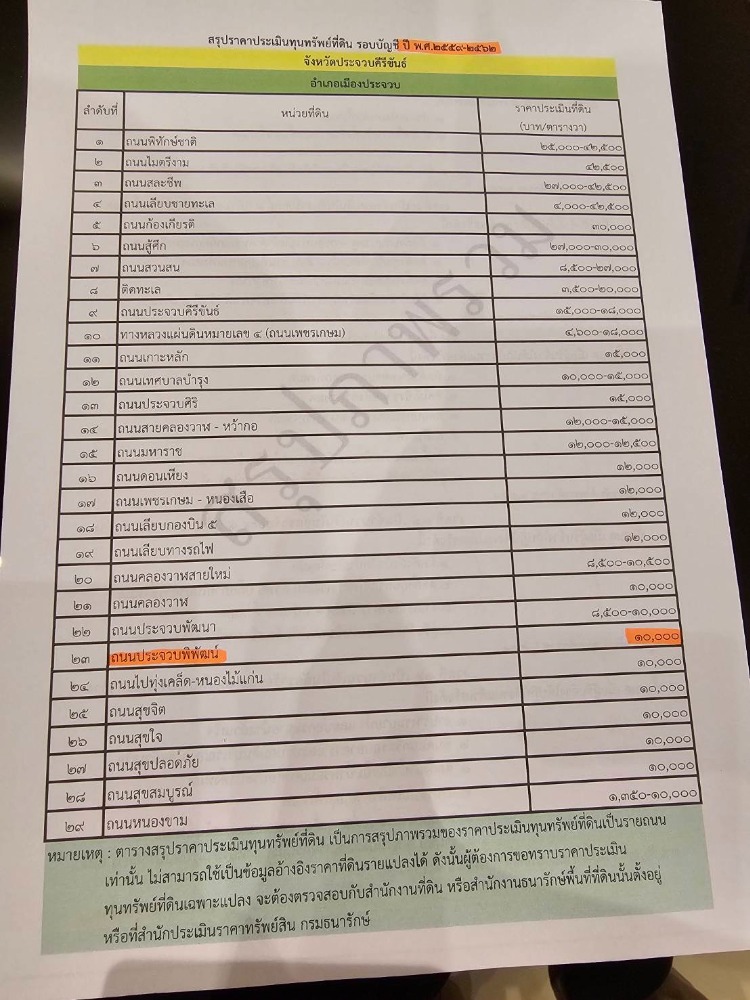 สรุปราคาประเมินทุนทรัพย์ที่ดิน รอบบัญชี ปี พ.ศ.๒๕๕๙-๒๕๖๒
จังหวัดประจวบคีรีขันธ์
อำเภอเมืองประจวบ
ลำดับที่ หน่วยที่ดิน ราคาประเมินที่ดิน
(บาท/ตารางวา)
๑ ถนนพิทักษ์ชาติ ๒๕,๐๐๐-๔๒,๕๐๐
๒ ถนนไมตรีงาม ๔๒,๕๐๐
๓ ถนนสละชีพ ๒๗,๐๐๐-๔๒,๕๐๐
๔ ถนนเลียบชายทะเล ๔,๐๐๐-๔๒,๕๐๐
๕ ถนนก้องเกียรติ ๓๐,๐๐๐
๖ ถนนสู้ศึก ๒๗,๐๐๐-๓๐,๐๐๐
๗ ถนนสวนสน ๘,๕๐๐-๒๗,๐๐๐
๘ ติดทะเล ๓,๕๐๐-๒๐,๐๐๐
๙ ถนนประจวบคีรีขันธ์ ๑๕,๐๐๐-๑๘,๐๐๐
๑๐ ทางหลวงแผ่นดินหมายเลข ๔ (ถนนเพชรเกษม) ๔,๖๐๐-๑๘,๐๐๐
๑๑ ถนนเกาะหลัก ๑๕,๐๐๐
๑๒ ถนนเทศบาลบำรุง ๑๐,๐๐๐-๑๕,๐๐๐
๑๓ ถนนประจวบศิริ ๑๕,๐๐๐
๑๔ ถนนสายคลองวาฬ - หว้ากอ ๑๒,๐๐๐-๑๕,๐๐๐
๑๕ ถนนมหาราช ๑๒,๐๐๐-๑๒,๕๐๐
๑๖ ถนนดอนเหียง ๑๒,๐๐๐
๑๗ ถนนเพชรเกษม - หนองเสือ ๑๒,๐๐๐
๑๘ ถนนเลียบกองบิน ๕ ๑๒,๐๐๐
๑๙ ถนนเลียบทางรถไฟ ๑๒,๐๐๐
๒๐ ถนนคลองวาฬสายใหม่ ๘,๕๐๐-๑๐,๕๐๐
๒๑ ถนนคลองวาฬ ๑๐,๐๐๐
๒๒ ถนนประจวบพัฒนา ๘,๕๐๐-๑๐,๐๐๐
๒๓ ถนนประจวบพิพัฒน์ ๑๐,๐๐๐
๒๔ ถนนไปทุ่งเคล็ด-หนองไม้แก่น ๑๐,๐๐๐
๒๕ ถนนสุขจิต ๑๐,๐๐๐
๒๖ ถนนสุขใจ ๑๐,๐๐๐
๒๗ ถนนสุขปลอดภัย ๑๐,๐๐๐
๒๘ ถนนสุขสมบูรณ์ ๑๐,๐๐๐
๒๙ ถนนหนองขาม ๑,๓๕๐-๑๐,๐๐๐
หมายเหตุ : ตารางสรุปราคาประเมินทุนทรัพย์ที่ดิน เป็นการสรุปภาพรวมของราคาประเมินทุนทรัพย์ที่ดินเป็นรายถนน
เท่านั้น ไม่สามารถใช้เป็นข้อมูลอ้างอิงราคาที่ดินรายแปลงได้ ดังนั้นผู้ต้องการขอทราบราคาประเมิน
ทุนทรัพย์ที่ดินเฉพาะแปลง จะต้องตรวจสอบกับสำนักงานที่ดิน หรือสำนักงานธนารักษ์พื้นที่ที่ดินนั้นตั้งอยู่
หรือที่สำนักประเมินราคาทรัพย์สิน กรมธนารักษ์
สรุปภาพรวม